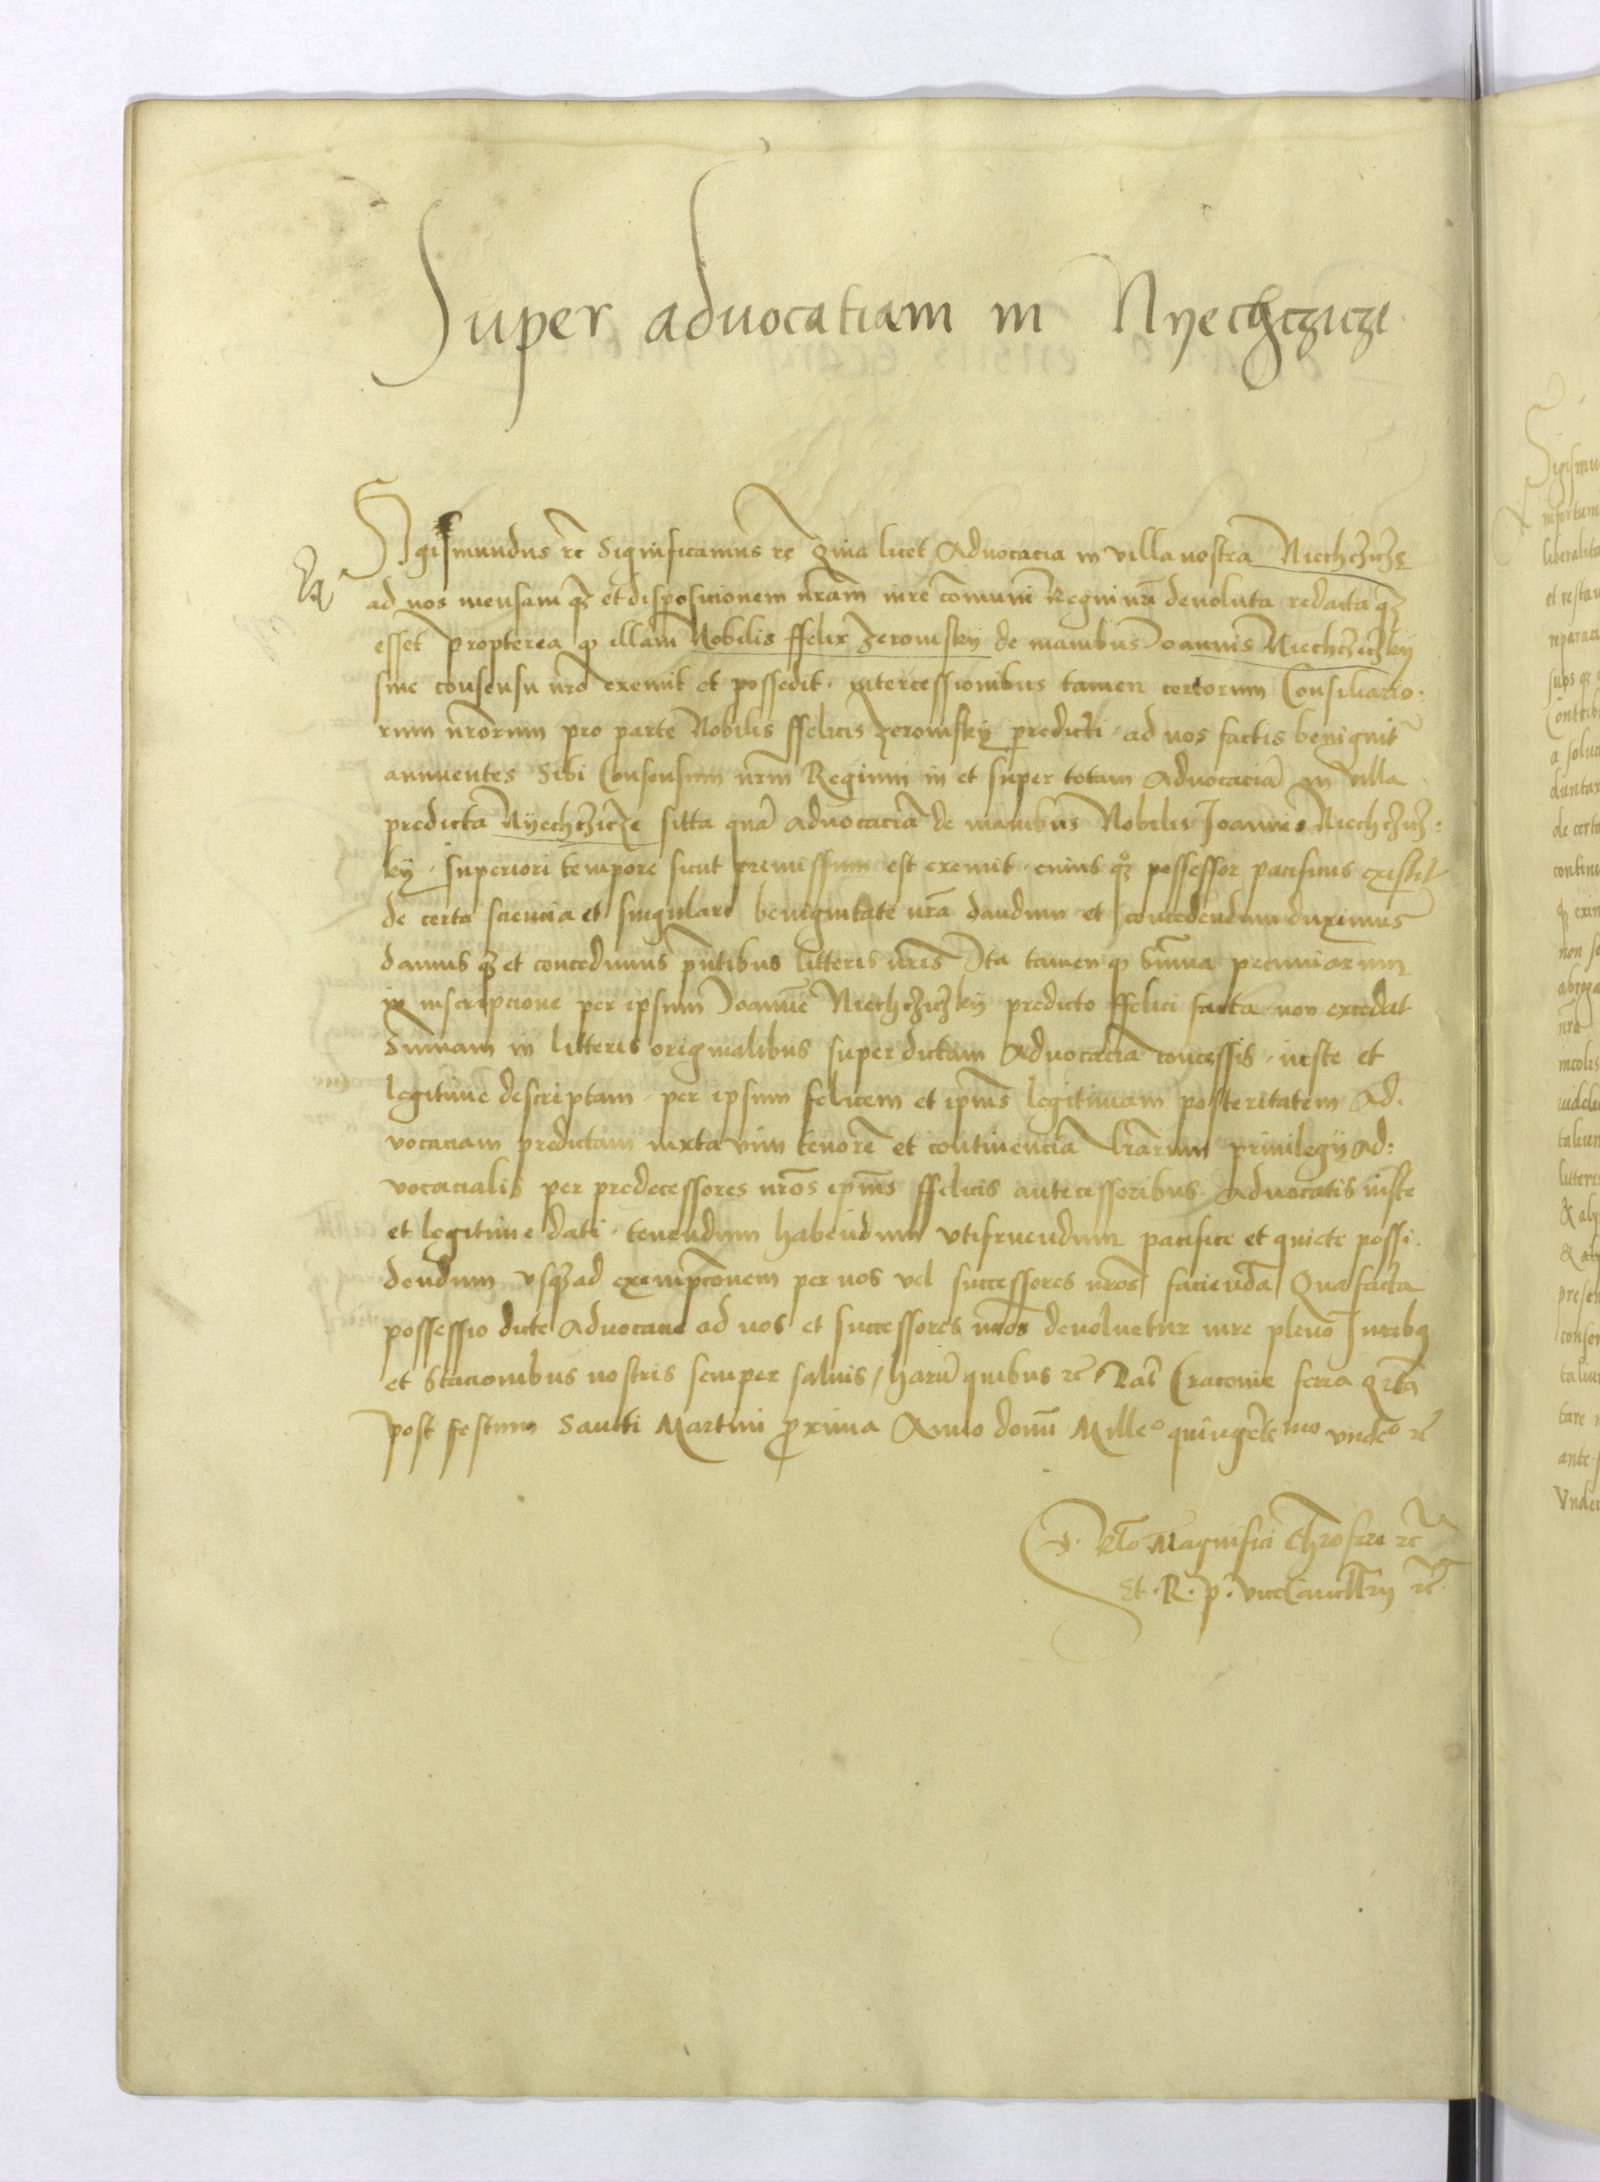 Super advocatiam in Nyechcziczi
Sigismundus rc Significamus rc quia licet Advocacia in villa nostra Niechcziczę
ad nos mensam qз et disposicionem nram iure comuni Regni nri devoluta redacta qз
esset propterea q illam Nobilis ffelix Zeromsky de manibus Joannis Niechcziczky
sine consensu nro exemit et possedit. intercessionibus tamen certorum Consiliario:
rum nrorum pro parte Nobilis ffelicis Zeromsky predicti. ad nos factis benignit
annuentes Sibi Consensum nrm Regium in et super totam Advocaciā in villa
predicta Nyechczicze sitta quā advocaciā de manibus Nobilis Joannis Niechczicz:
ky. superiori tempore sicut premissum est exemit. cuius qз possessor pacificus existit
de certa sciencia et singulari benignitate nra dandum et concedendum duximus
damus qз et concedimus pntibus litteris nris Ita tamen q summa pecuniarum
in inscripcione per ipsum Joannē Niechcziczky predicto ffelici facta non excedat
Summam in litteris originalibus super dictam Advocaciā concessis. iuste et
legitime descriptam. per ipsum felicem et ipius legitimam posteritatem Ad.
vocaciam predictam iuxta vim tenorē et continenciā lrarum privilegii ad:
vocacialis per predecessores nros ipius ffelicis antecessoribus. advocatis iuste
et legitime dati. tenendum habendum utifruendum pacifice et quiete possi.
dendum usqз ad exempcionem per nos vel successores nros faciendā Qua facta
possessio dicte Advocacie ad nos et successores nros devoluetur iure pleno Juribqз
et Stacionibus nostris semper salvis, harū quibus rc Dat Cracovie feria qrta
post festum Sancti Martini proxima Anno domī Milleo quingētesimo undeo rc
Rlo Magnifici Chrofere rc
Et. R. p. vicecancellrii rc